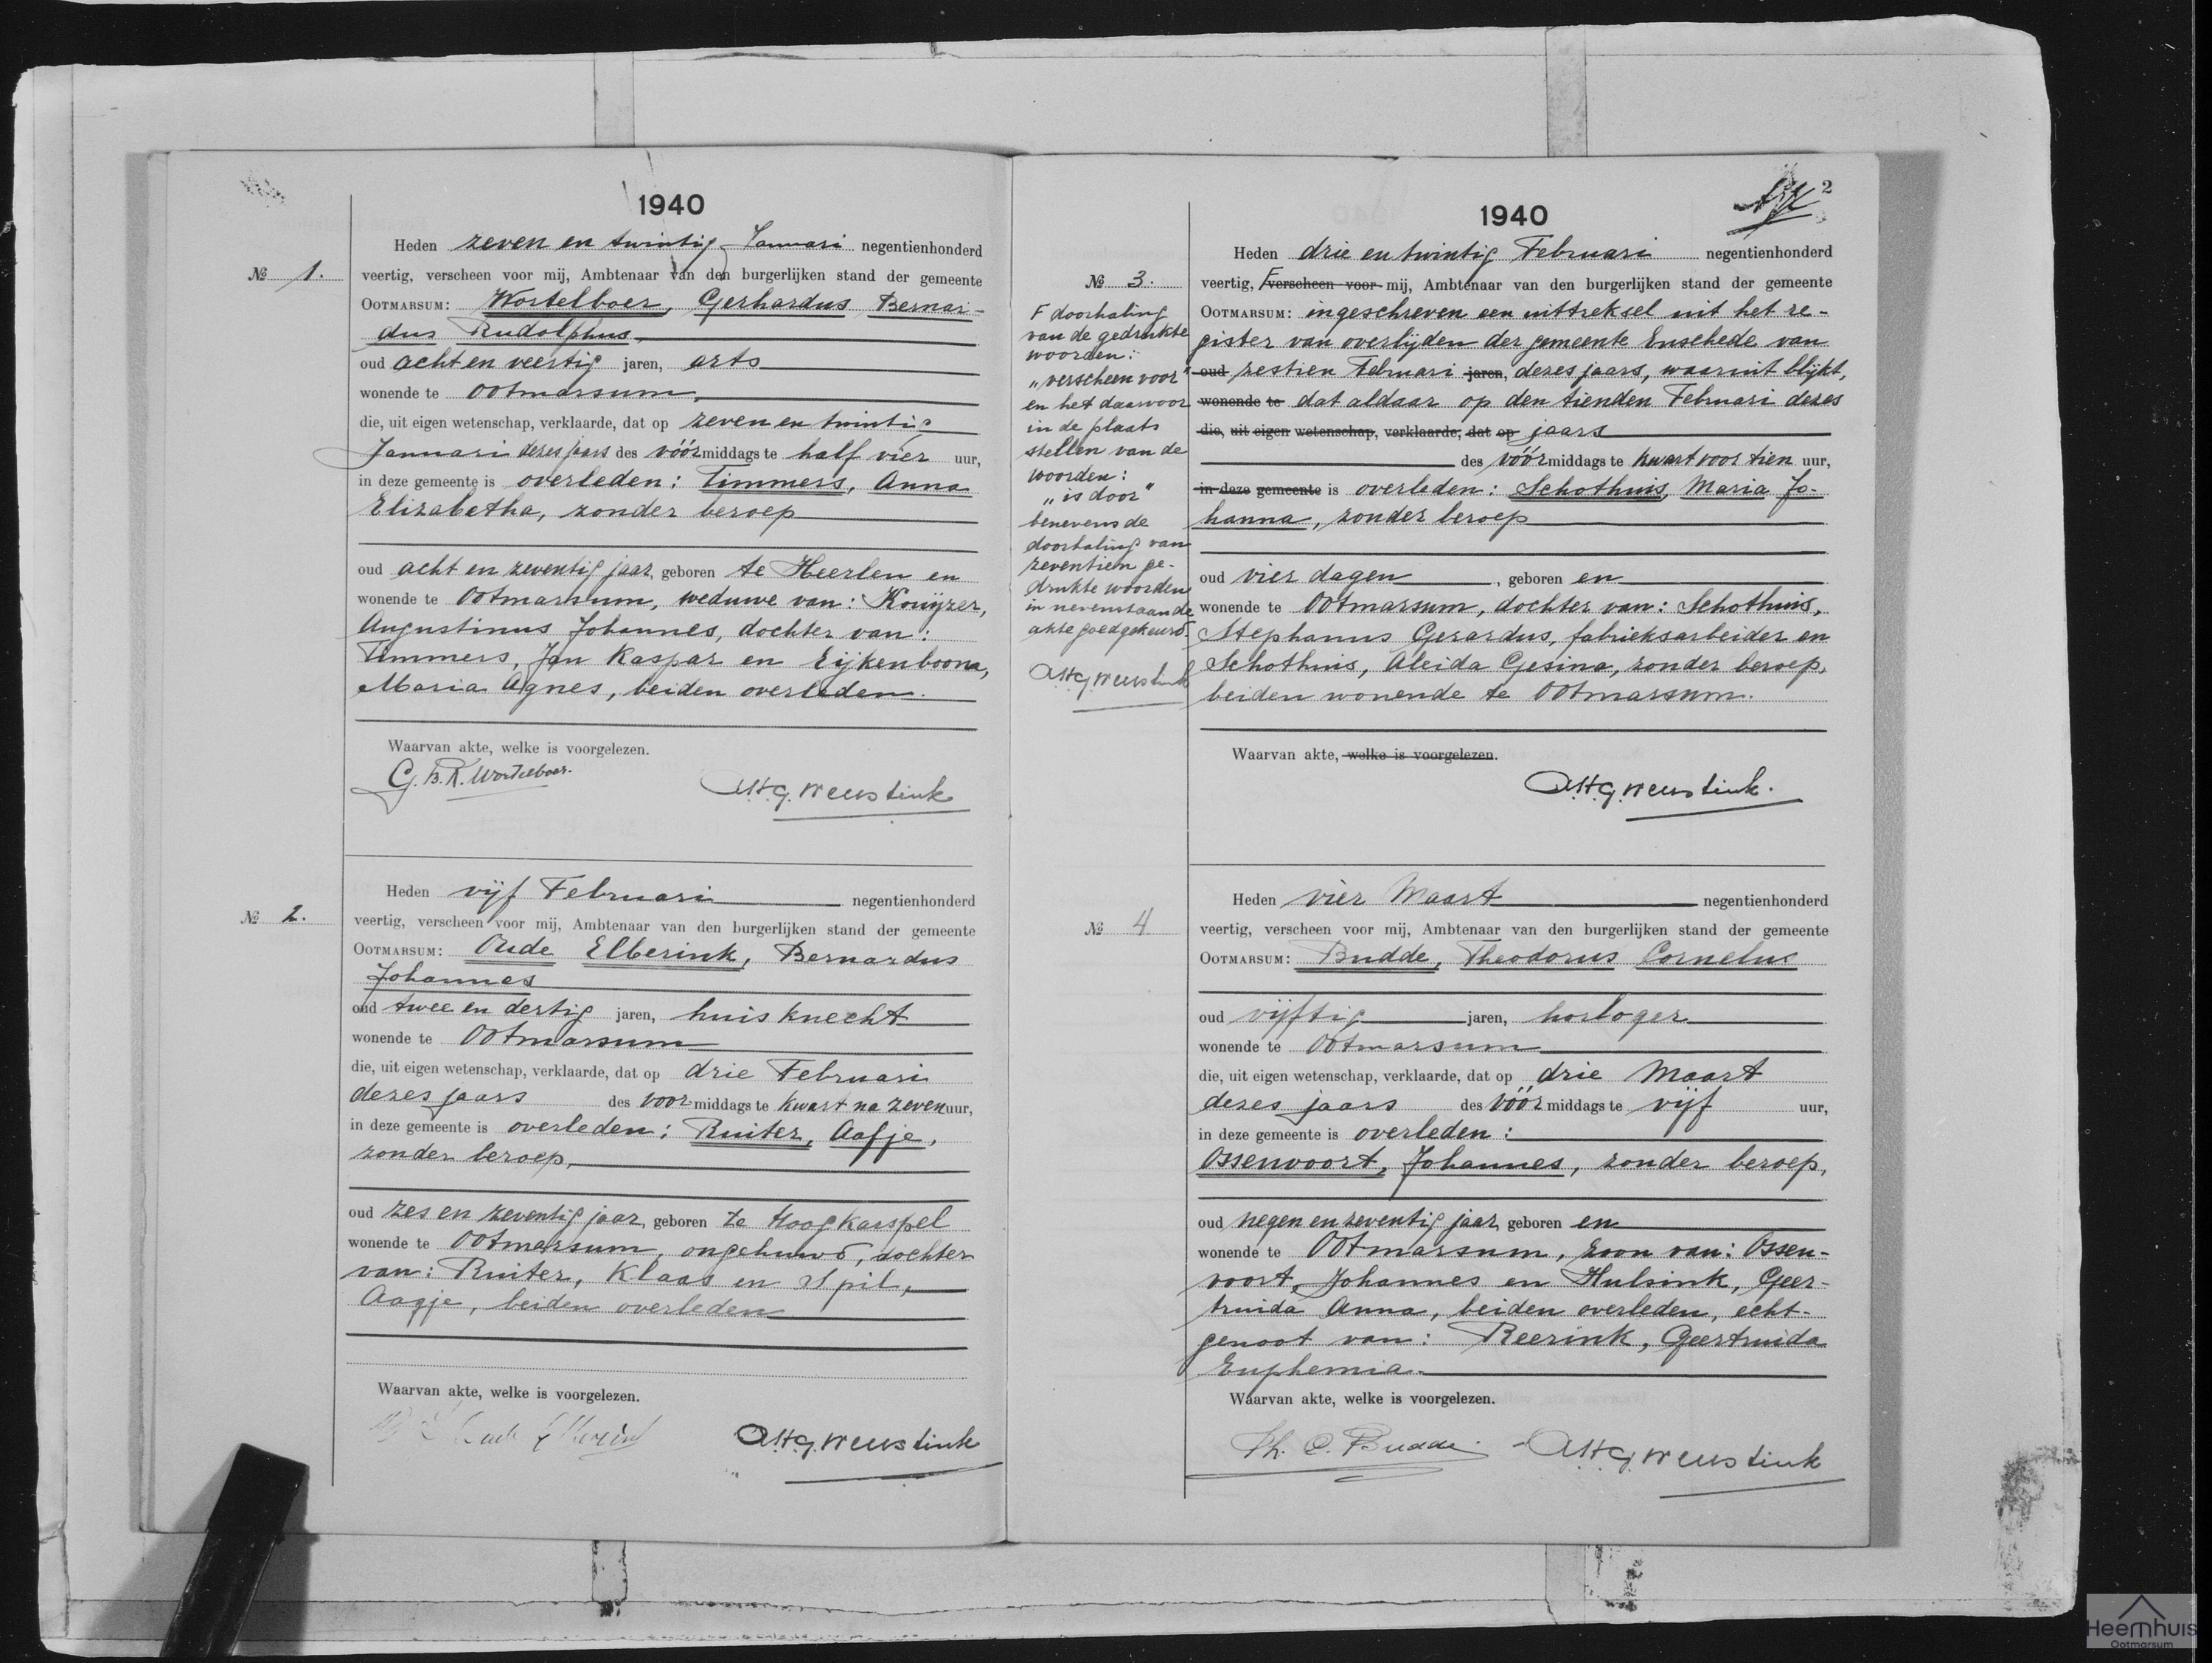 1940
Heden zeven en twintig Januari negentienhonderd
№ 1.
veertig, verscheen voor mij, Ambtenaar van den burgerlijken stand der gemeente
OOTMARSUM: Wortelboer, Gerhardus Bernar-
dus Rudolphus,
oud acht en veertig jaren, arts
wonende te Ootmarsum,
die, uit eigen wetenschap, verklaarde, dat op zeven en twintig
Januari dezes jaars des vóórmiddags te half vier uur,
in deze gemeente is overleden: Timmers, Anna
Elizabetha, zonder beroep
oud acht en zeventig jaar, geboren te Heerlen en
wonende te Ootmarsum, weduwe van: Kouijzer,
Augustinus Johannes, dochter van:
Timmers, Jan Kaspar en Eijkenboom,
Maria Agnes, beiden overleden.
Waarvan akte, welke is voorgelezen.
G.B.R. Wortelboer.
AHG Weustink
Heden vijf Februari negentienhonderd
№ 2.
veertig, verscheen voor mij, Ambtenaar van den burgerlijken stand der gemeente
OOTMARSUM: Oude Elberink, Bernardus
Johannes
oud twee en dertig jaren, huisknecht
wonende te Ootmarsum
die, uit eigen wetenschap, verklaarde, dat op drie Februari
dezes jaars des voormiddags te kwart na zeven uur,
in deze gemeente is overleden: Ruiter, Aafje,
zonder beroep,
oud zes en zeventig jaar, geboren te Hoogkarspel
wonende te Ootmarsum, ongehuwd, dochter
van: Ruiter, Klaas en Spil,
Aagje, beiden overleden
Waarvan akte, welke is voorgelezen.
AHG Weustink
2
1940
Heden drie en twintig Februari negentienhonderd
№ 3.
veertig, F verscheen voor mij, Ambtenaar van den burgerlijken stand der gemeente
OOTMARSUM: ingeschreven een uittreksel uit het re-
gister van overlijden der gemeente Enschede van
oud zestien Februari jaren, dezes jaars, waaruit blijkt,
wonende te dat aldaar op den tienden Februari dezes
die, uit eigen wetenschap, verklaarde, dat op jaars
des vóórmiddags te kwart voor tien uur,
in deze gemeente is overleden: Schothuis, Maria Jo-
hanna, zonder beroep
oud vier dagen, geboren en
wonende te Ootmarsum, dochter van: Schothuis,
Stephanus Gerardus, fabrieksarbeider en
Schothuis, Aleida Gesina, zonder beroep,
beiden wonende te Ootmarsum.
Waarvan akte, welke is voorgelezen.
AHG Weustink.
F doorhaling
van de gedrukte
woorden:
„verscheen voor"
en het daarvoor
in de plaats
stellen van de
woorden:
„is door"
benevens de
doorhaling van
zeventien ge-
drukte woorden
in nevenstaande
akte goedgekeurd.
AHG Weustink
Heden vier Maart negentienhonderd
№ 4
veertig, verscheen voor mij, Ambtenaar van den burgerlijken stand der gemeente
OOTMARSUM: Budde, Theodorus Cornelus
oud vijftig jaren, horloger
wonende te Ootmarsum
die, uit eigen wetenschap, verklaarde, dat op drie Maart
dezes jaars des vóórmiddags te vijf uur,
in deze gemeente is overleden:
Ossenvoort, Johannes, zonder beroep,
oud negen en zeventig jaar, geboren en
wonende te Ootmarsum, zoon van: Ossen-
voort, Johannes en Hulsink, Geer-
truida Anna, beiden overleden, echt-
genoot van: Reerink, Geertruida
Euphemia.
Waarvan akte, welke is voorgelezen.
Th. C. Budde.
AHG Weustink
Heemhuis
Ootmarsum